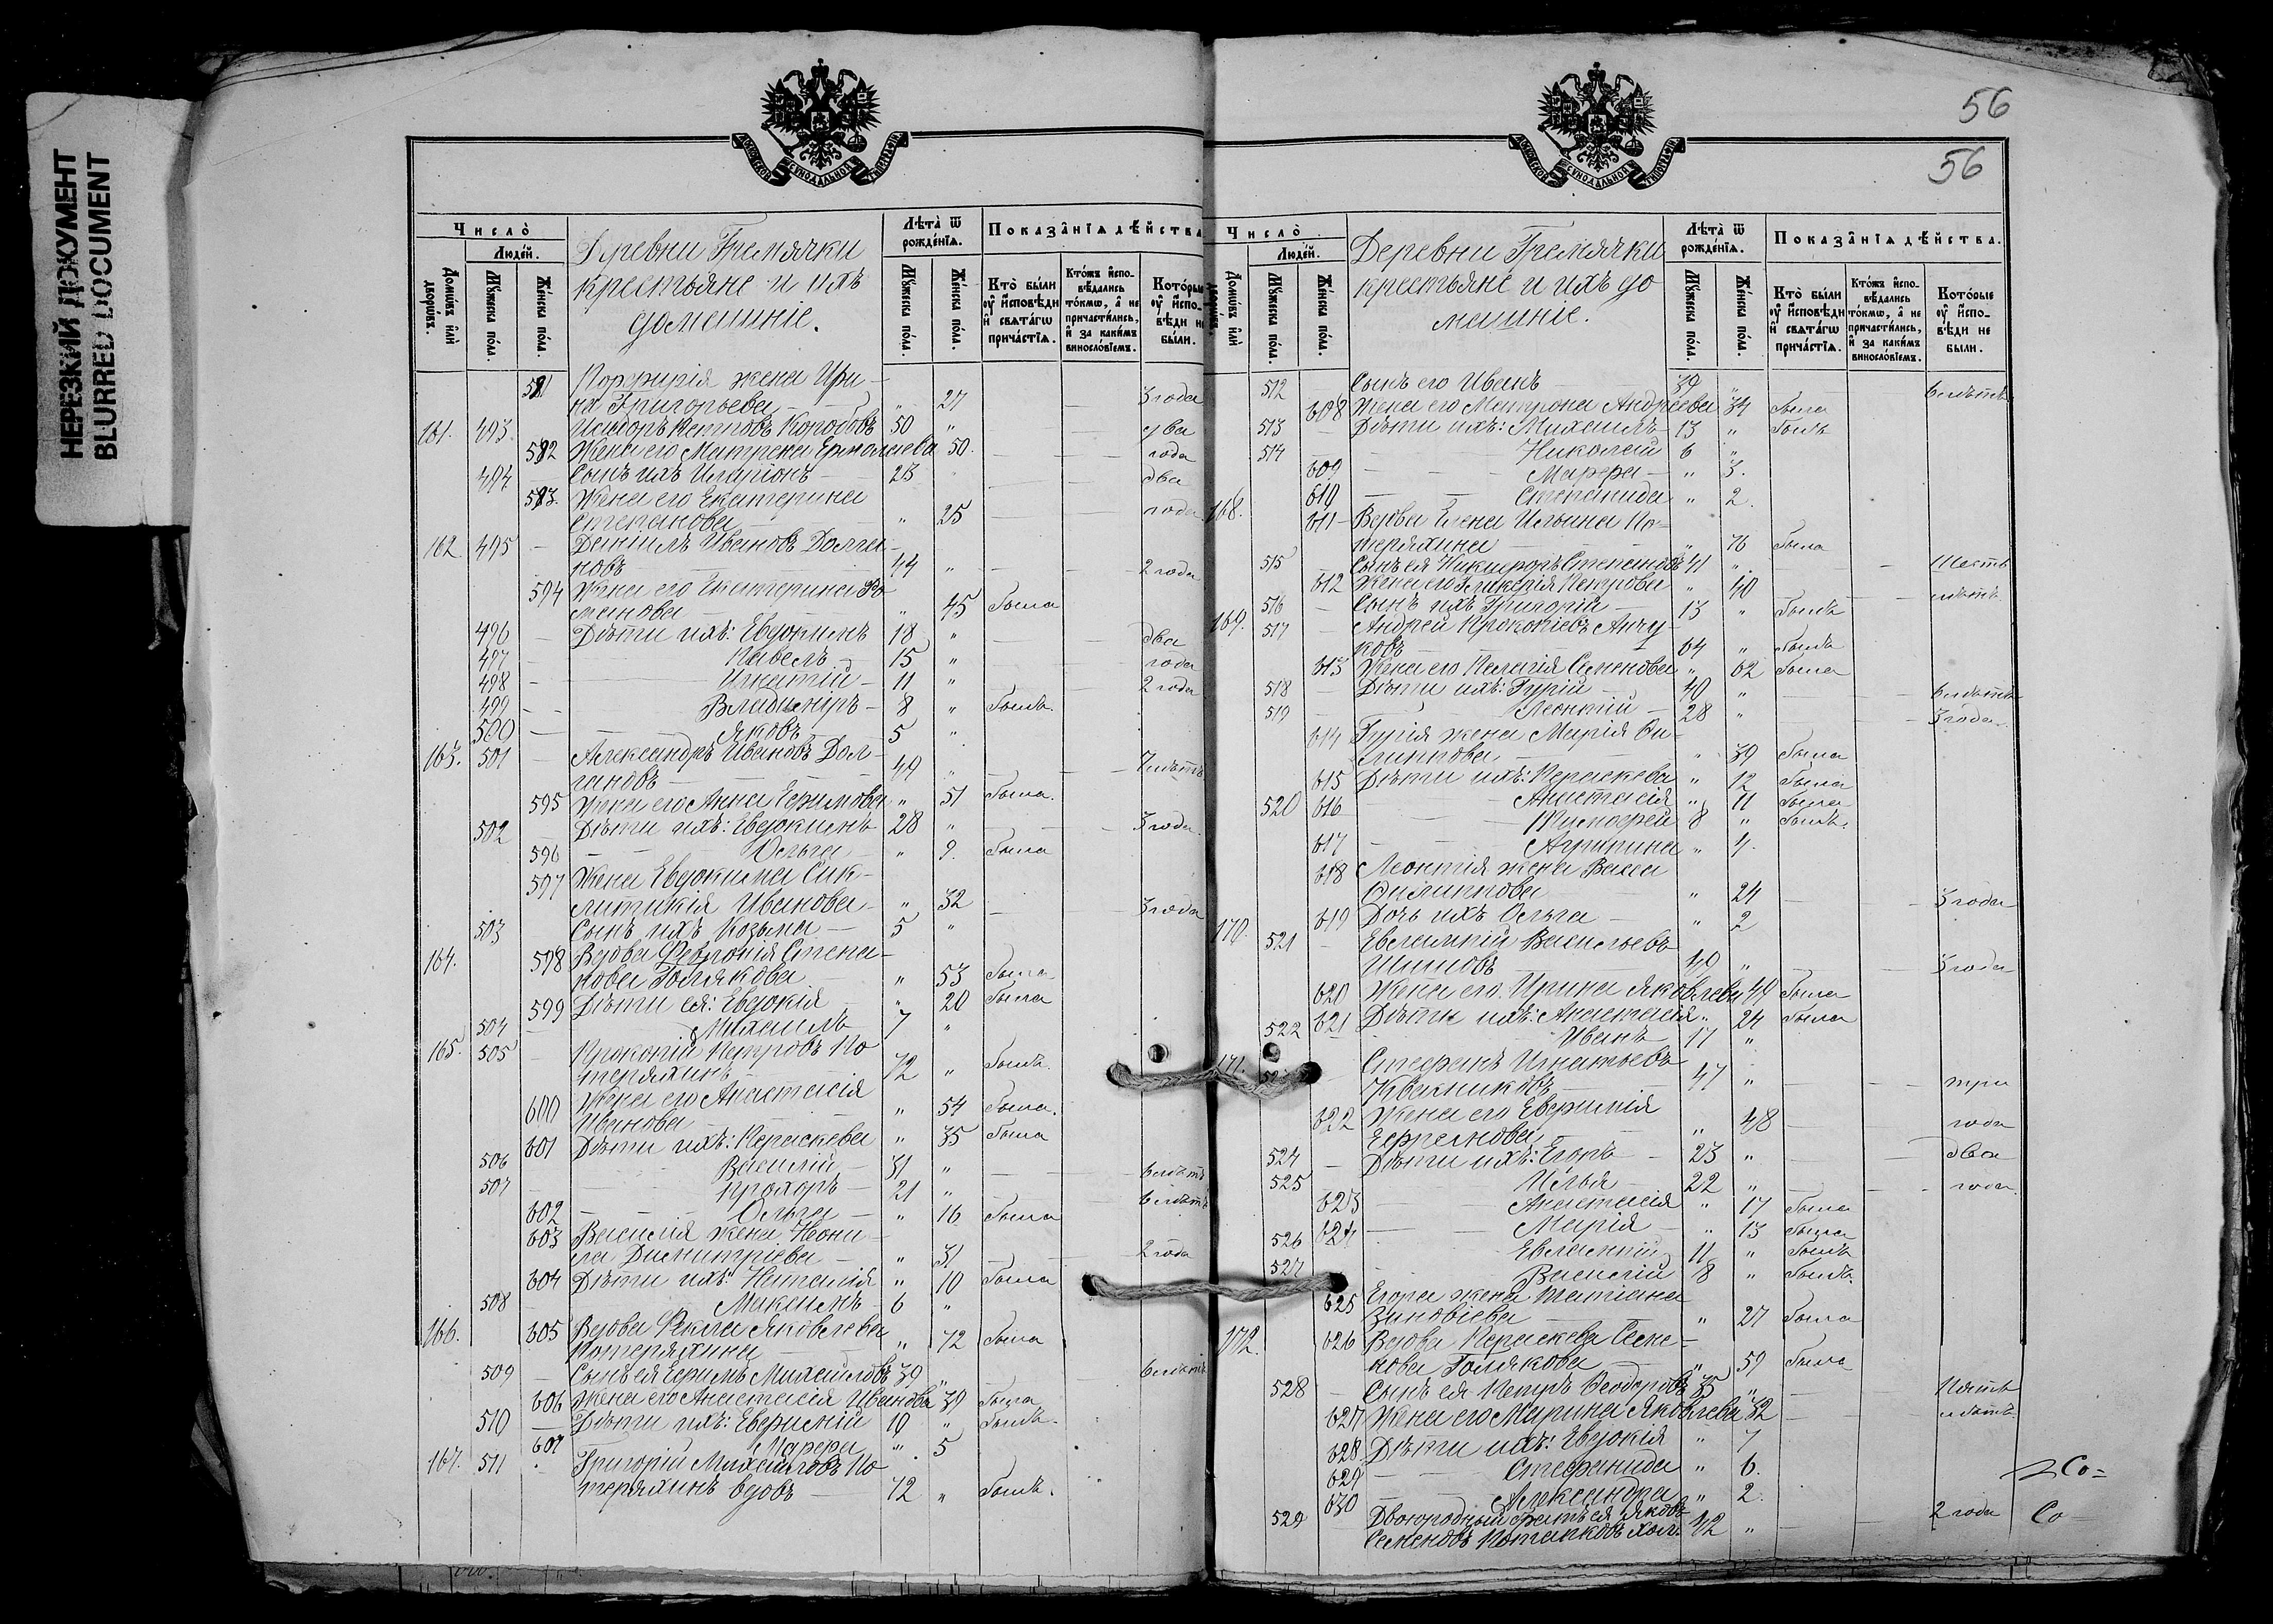 НЕРЕЗКИЙ ДОКУМЕНТ
BLURRED DOCUMENT
МОСКОВСКОЙ СѴНОДАЛЬНОЙ ТѴПОГРАФІИ
Число̀
Люде́й.
Домѡ́въ и҆лѝ дворѡ́въ.
Мꙋ́жеска по́ла.
Же́нска по́ла.
Деревни Гремячки
крестьяне и ихъ
домашніе.
Лѣ́та ѿ рожде́нїѧ.
Мꙋ́жеска по́ла.
Же́нска по́ла.
Показа̂нїѧ дѣ́йства
Кто̀ бы́ли ᲂу҆ и҆сповѣ́ди и҆ свѧта́гѡ прича́стїѧ.
Кто́жъ и҆сповѣ́дались то́кмѡ, а҆ не причасти́лись, и҆ за каки́мъ виносло́вїемъ.
Кото́рые ᲂу҆ и҆сповѣ́ди не бы́ли.
581 Порфирія жена Ири-
на Григорьева " 27 3 года
161. 493. Исидоръ Петровъ Коробовъ 50 " два
582 Жена его Матрена Ермолаева 50. года
494 Сынъ ихъ Иларіонъ 23 два
583. Жена его Екатерина
Степанова " 25 года
162 495 Даніилъ Ивановъ Долга-
новъ 44 " 2 года
594 Жена его Екатерина Ро-
манова " 45 была
496 Дѣти ихъ: Евдокимъ 18 " два
497 Павелъ 15 " года
498 Игнатій 11 " 2 года
499 Владиміръ 8 " былъ.
500 Яковъ 5 "
163. 501 Александръ Ивановъ Дол-
гановъ 49 " 7 лѣтъ
595 Жена его Анна Ефимова " 51 была.
502 Дѣти ихъ: Евдокимъ 28 " 3 года.
596 Ольга " 9. была
597 Жена Евдокима Сик-
литикія Иванова " 32 3 года
503 Сынъ ихъ Козьма 5 "
164. 598 Вдова Февронія Степа-
нова Голякова " 53 была
599 Дѣти ея: Евдокія " 20 была
504 Михаилъ 7 "
165. 505 Прокопій Петровъ По-
теряхинъ 72 " былъ.
600 Жена его Анастасія
Иванова " 54 была.
601 Дѣти ихъ: Параскева " 35 была
506 Василій 31 " 6 лѣтъ
507 Прохоръ 21 " 6 лѣтъ
602 Ольга " 16 была
603 Василія жена Неони-
ла Димитріева " 31 2 года
604 Дѣти ихъ: Наталія " 10 была
508 Максимъ 6 "
166. 605 Вдова Фекла Яковлева
Потеряхина " 72 была
509 Сынъ ея Ефимъ Михаиловъ 39 " 6 лѣтъ
606 Жена его Анастасія Иванова 39 была
510 Дѣти ихъ: Евфимій 10 " былъ.
607 Марфа " 5
167. 511 Григорій Михаиловъ По-
теряхинъ вдовъ 72 " былъ.
56
56
МОСКОВСКОЙ СѴНОДАЛЬНОЙ ТѴПОГРАФІИ
Число̀
Люде́й.
Домѡ́въ и҆лѝ дворѡ́въ.
Мꙋ́жеска по́ла.
Же́нска по́ла.
Деревни Гремячки
крестьяне и ихъ до
машніе.
Лѣ́та ѿ рожде́нїѧ.
Мꙋ́жеска по́ла.
Же́нска по́ла.
Показа̂нїѧ дѣ́йства.
Кто̀ бы́ли ᲂу҆ и҆сповѣ́ди и҆ свѧта́гѡ прича́стїѧ.
Кто́жъ и҆сповѣ́дались то́кмѡ, а҆ не причасти́лись, и҆ за каки́мъ виносло́вїемъ.
Кото́рые ᲂу҆ и҆сповѣ́ди не бы́ли.
512 Сынъ его Иванъ 39 " 6 лѣтъ
608 Жена его Матрона Андреева 34 была
513 Дѣти ихъ: Михаилъ 13 " былъ
514 Николай 6 "
609 Марфа " 3.
610 Степанида " 2.
168. 611 Вдова Елена Ильина По-
теряхина " 76 была
515 Сынъ ея Никифоръ Степановъ 41 " Шесть
612 Жена его Гликерія Петрова " 40 лѣтъ
516 Сынъ ихъ Григорій 13 " былъ
169. 517 Андрей Прокопіевъ Анчу-
ковъ 64 " былъ
613 Жена его Пелагія Семенова " 62 была
518 Дѣти ихъ: Гурій 40 " 6 лѣтъ
519 Леонтій 28 " 3 года
614 Гурія жена Марія Фи-
липпова " 39 была
615 Дѣти ихъ: Параскева " 12 была
616 Анастасія " 11 была
520 Тимофей 8 " былъ.
617 Агрипина " 4.
618 Леонтія жена Васса
Филиппова " 24 3 года
619 Дочь ихъ Ольга " 2
170. 521 Евлампій Васильевъ
Шишовъ 49 " 3 года
620 Жена его Ирина Яковлева 49 была
621 Дѣти ихъ: Анастасія " 24 была
522 Иванъ 17 "
171. Стефанъ Игнатьевъ
Квасниковъ 47 " три
622 Жена его Евфимія
Ефремова " 48 года
524 Дѣти ихъ: Егоръ 23 " два
525 Илья 22 " года
623 Анастасія " 17 была
624 Марія " 13 была
526 Евлампій 11 " былъ
527 Василій 8 " былъ.
625 Егора жена Татіана
Зиновіева " 27 была
172. 626 Вдова Параскева Семе-
нова Голякова " 59 была
528 Сынъ ея Петръ Феодоровъ 35 " Пять
627 Жена его Марина Яковлева 32 лѣтъ.
628. Дѣти ихъ: Евдокія " 7
629 Стефанида " 6.
630 Александра " 2.
529 Двоюродный братъ ея Яковъ
Семеновъ Потапковъ хол. 42 " 2 года
Со=
Со